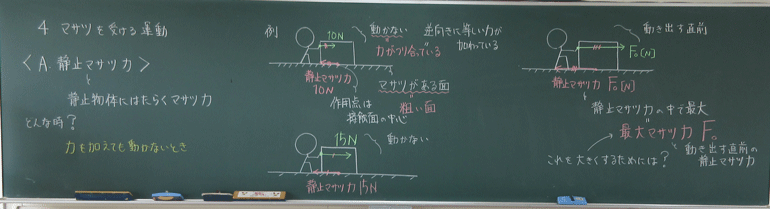 4 マサツを受ける運動
<A. 静止マサツ力>
静止物体にはたらくマサツ力
どんな時?
力を加えても動かないとき
例
10N
動かない
逆向きに等しい力が
加わっている
力がつり合っている
静止マサツ力
10N
マサツがある面
粗い面
作用点は
接触面の中心
15N
動かない
静止マサツ力 15N
動き出す直前
F₀[N]
静止マサツ力 F₀[N]
静止マサツ力の中で最大
最大マサツ力 F₀
動き出す直前の
静止マサツ力
これを大きくするためには?